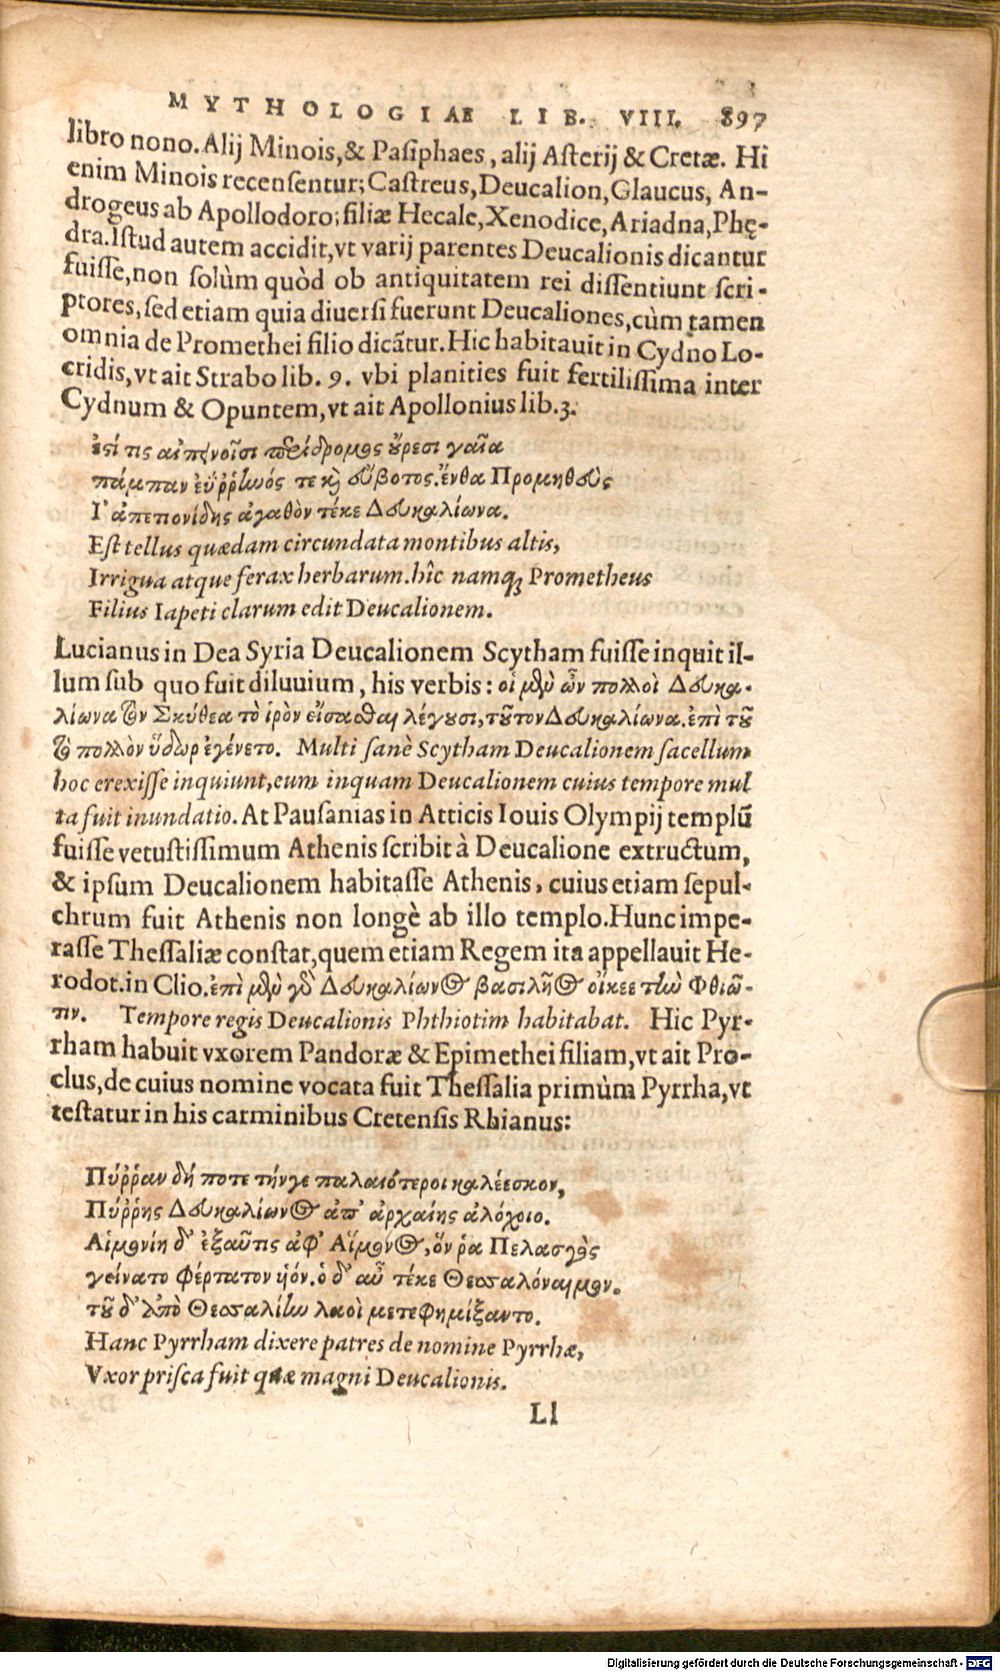 MYTHOLOGIAE LIB. VIII. 897
libro nono. Alij Minois, & Pasiphaes, alij Asterij & Cretæ. Hi
enim Minois recensentur; Castreus, Deucalion, Glaucus, An-
drogeus ab Apollodoro; filiæ Hecale, Xenodice, Ariadna, Phę-
dra. Istud autem accidit, vt varij parentes Deucalionis dicantur
fuisse, non solùm quòd ob antiquitatem rei dissentiunt scri-
ptores, sed etiam quia diuersi fuerunt Deucaliones, cùm tamen
omnia de Promethei filio dicãtur. Hic habitauit in Cydno Lo-
cridis, vt ait Strabo lib. 9. vbi planities fuit fertilissima inter
Cydnum & Opuntem, vt ait Apollonius lib. 3.
ἐςί τις αἰπεινοῖσι περίδρομος ὄρεσι γαῖα
πάμπαν ἐΰῤῥηνός τε καὶ εὔβοτος. ἔνθα Προμηθεὺς
Ι᾽απετιονίδης ἀγαθὸν τέκε Δευκαλίωνα.
Est tellus quædam circundata montibus altis,
Irrigua atque ferax herbarum. hîc namq; Prometheus
Filius Iapeti clarum edit Deucalionem.
Lucianus in Dea Syria Deucalionem Scytham fuisse inquit il-
lum sub quo fuit diluuium, his verbis: οἱ μὲν ὦν πολλοὶ Δευκα-
λίωνα τὸν Σκύθεα τὸ ἱρὸν εἵσασθαι λέγουσι, τοῦτον Δευκαλίωνα. ἐπὶ τοῦ
τὸ πολλὸν ὕδωρ ἐγένετο. Multi sanè Scytham Deucalionem sacellum
hoc erexisse inquiunt, eum inquam Deucalionem cuius tempore mul
ta fuit inundatio. At Pausanias in Atticis Iouis Olympij templũ
fuisse vetustissimum Athenis scribit à Deucalione extructum,
& ipsum Deucalionem habitasse Athenis, cuius etiam sepul-
chrum fuit Athenis non longè ab illo templo. Hunc impe-
rasse Thessaliæ constat, quem etiam Regem ita appellauit He-
rodot. in Clio. ἐπὶ μὲν γὸ Δευκαλίωνος βασιλῆος οἴκεε τὴν Φθιῶ-
τιν. Tempore regis Deucalionis Phthiotim habitabat. Hic Pyr-
rham habuit vxorem Pandoræ & Epimethei filiam, vt ait Pro-
clus, de cuius nomine vocata fuit Thessalia primùm Pyrrha, vt
testatur in his carminibus Cretensis Rhianus:
Πύῤῥαν δή ποτε τήνγε παλαιότεροι καλέεσκον,
Πύῤῥης Δευκαλίωνος ἀπ᾽ ἀρχαίης ἀλόχοιο.
Αἱμονίη δ᾽ ἐξαῦτις ἀφ᾽ Αἵμονος, ὅν ῥα Πελασγὸς
γείνατο φέρτατον ὑιόν. ὁ δ᾽ αὖ τέκε Θεσσαλὸν αἵμον.
τοῦ δ᾽ ἀπὸ Θεσσαλίην λαοὶ μετεφημίξαντο.
Hanc Pyrrham dixere patres de nomine Pyrrhæ,
Vxor prisca fuit quæ magni Deucalionis.
Ll
Digitalisierung gefördert durch die Deutsche Forschungsgemeinschaft - DFG